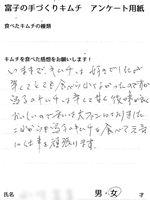 富子の手づくりキムチ　アンケート用紙
食べたキムチの種類
キムチを食べた感想をお願いします！
いままで、キムチは好きでしたが
辛くてとても食べられなかったので
キムチは辛くて甘く後味が良く
おいしいので今は大ファンになりました
これからも富子のキムチを食べて元気
に仕事を頑張ります。
氏名
男・女　才